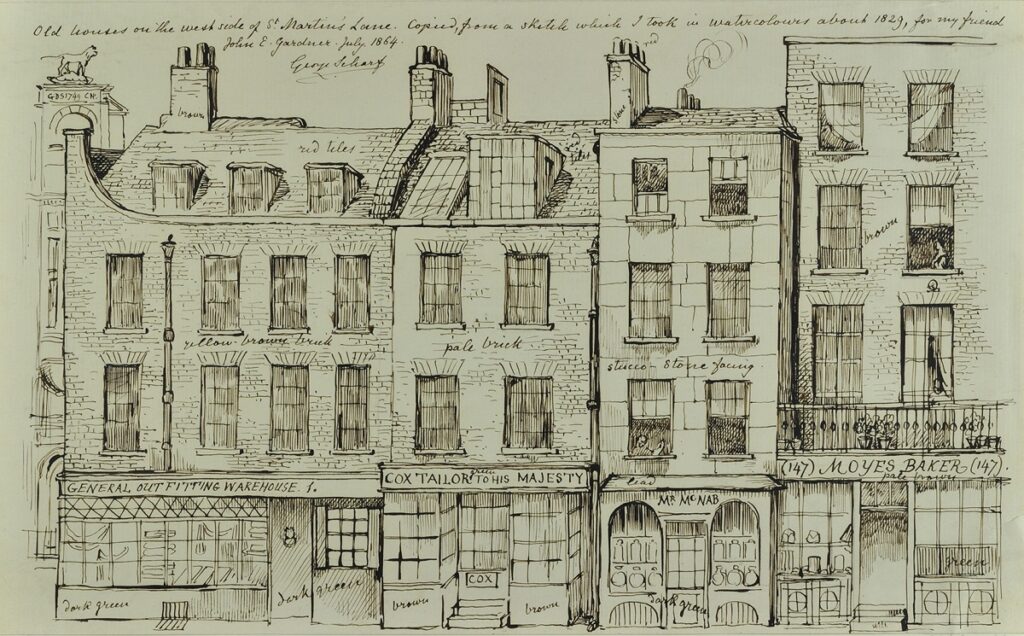 Old houses on the west side of St Martin's Lane. Copied, from a sketch which I took in watercolours about 1829, for my friend
John E. Gardner. July 1864.
George Scharf
red
brown
red tiles
tiles
brown
yellow-brown brick
pale brick
stucco - Stone facing
lead
green
GENERAL OUTFITTING WAREHOUSE. 1.
COX TAILOR TO HIS MAJESTY
Mr. McNAB
(147) MOYES. BAKER (147).
pale brown
COX
green
dark green
dark green
brown
brown
dark green